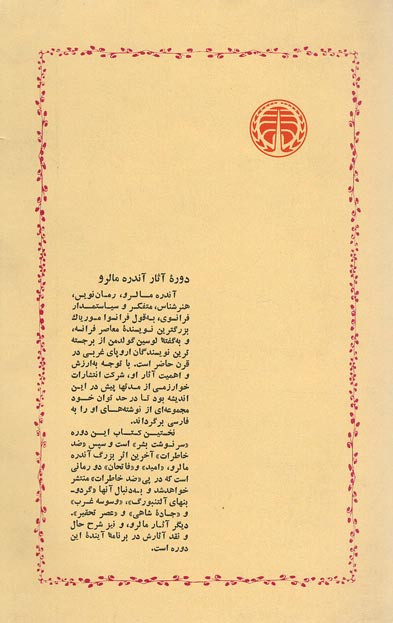 دورهٔ آثار آندره مالرو
آندره مـالـرو، رمان‌نویس،
هنرشناس، متفکر و سیاستمدار
فرانسوی، به‌قول فرانسوا موریاك
بزرگترین نویسندهٔ معاصر فرانسه،
و به‌گفتهٔ لوسین گولدمن از برجسته
ترین نویسندگان اروپای غربی در
قرن حاضر است. با توجه به‌ارزش
و اهمیت آثار او، شرکت انتشارات
خوارزمی از مدتها پیش در این
اندیشه بود تـا در حد توان خـود
مجموعه‌ای از نوشته‌های او را به
فارسی برگرداند.
نخستین کتـاب ایـن دوره
«سرنوشت بشر» است و سپس «ضد
خاطرات» آخرین اثر بزرگ آندره
مالرو، «امید» و «فاتحان» دو رمانی
است که در پی «ضد خاطرات» منتشر
خواهدشد و به‌دنبال آنها «گردو-
بنهای آلتنبورگ»، «وسوسه غرب»
و «جـادهٔ شاهی» و «عصر تحقیر».
دیگر آثـار مالرو، و نیز شرح حال
و نقد آثارش در برنامهٔ آیندهٔ این
دوره است.